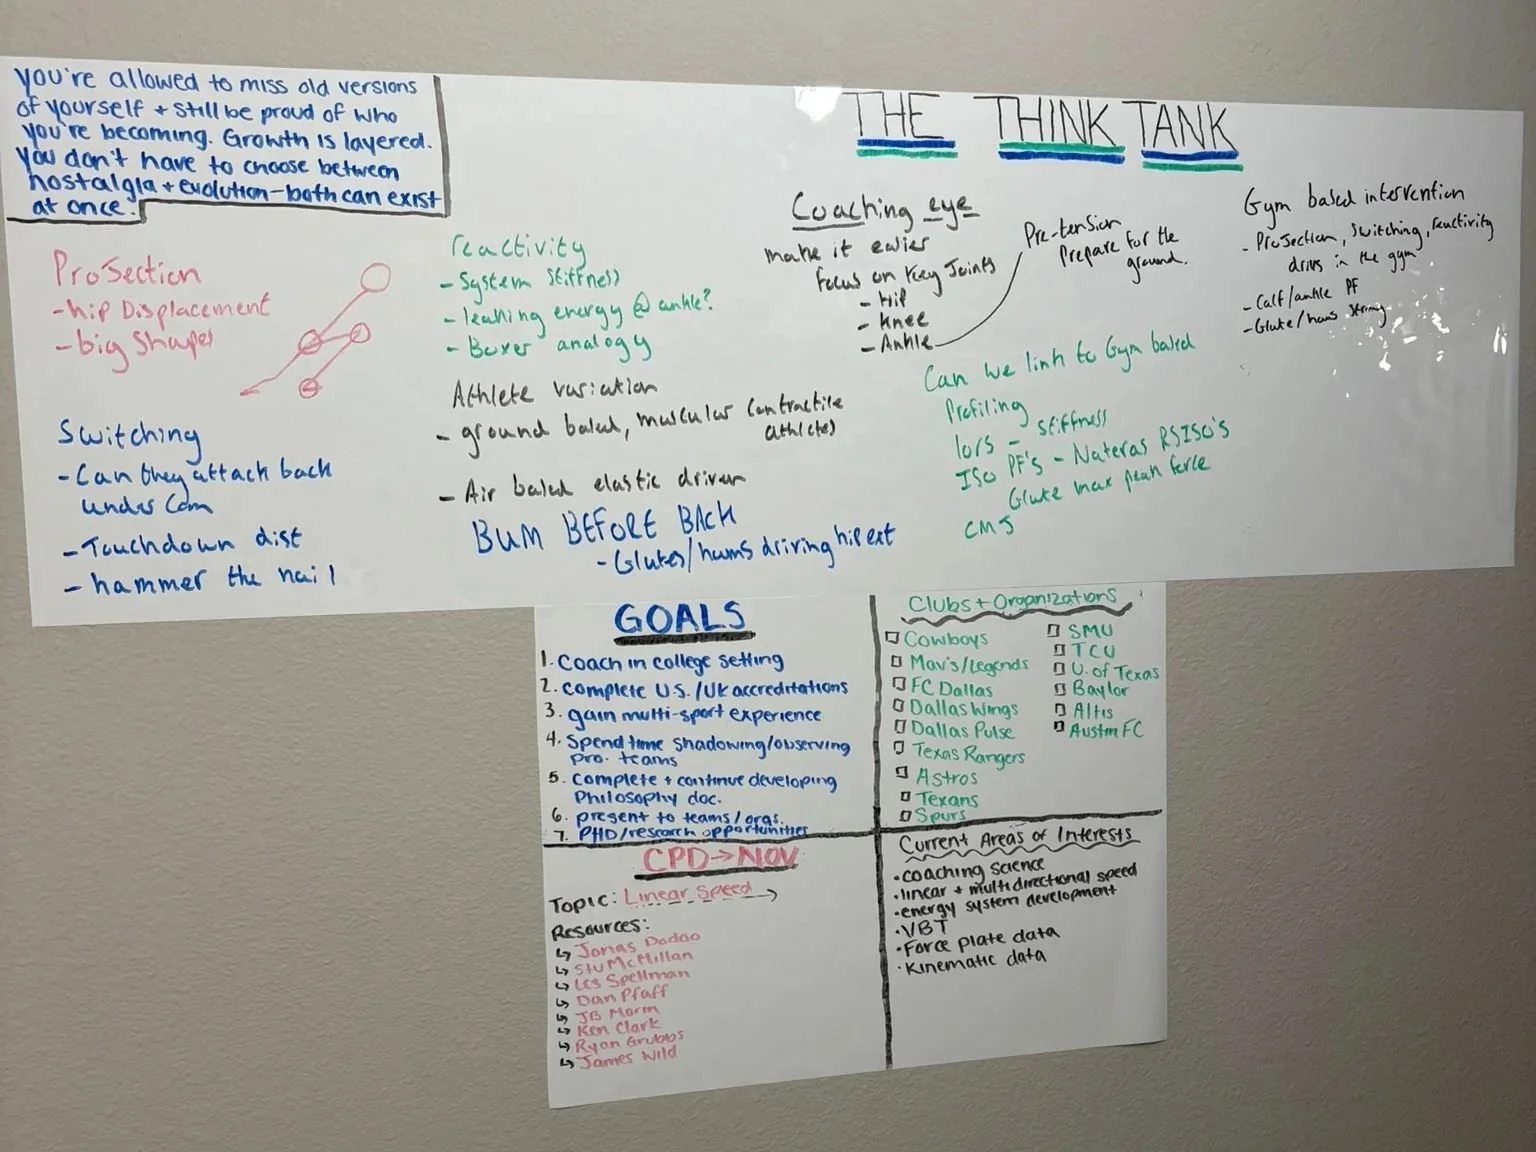 you're allowed to miss old versions
of yourself + still be proud of who
you're becoming. Growth is layered.
you don't have to choose between
nostalgia + evolution - both can exist
at once.
THE THINK TANK
Projection
- hip Displacement
- big shapes
Switching
- Can they attack back
under Com
- Touchdown dist
- hammer the nail
reactivity
- System stiffness
- leaking energy @ ankle?
- Boxer analogy
Athlete variation
- ground based, muscular contractile
athletes
- Air based elastic driven
BUM BEFORE BACK
- Glutes/hams driving hip ext
Coaching eye
make it easier
focus on key Joints
- Hip
- Knee
- Ankle
Pre-tension
Prepare for the
ground.
Can we link to Gym based
Profiling
- stiffness
ISO PF's - Nateras RSISO's
Glute max peak force
CMJ
Gym based intervention
- Projection, Switching, reactivity
drivs in the gym
- Calf/ankle PF
- Glute/hams
GOALS
1. Coach in college setting
2. complete U.S./UK accreditations
3. gain multi-sport experience
4. Spend time shadowing/observing
pro. teams
5. complete + continue developing
Philosophy doc.
6. present to teams/orgs.
7. PHD/research opportunities
Clubs + Organizations
Cowboys
Mav's/Legends
FC Dallas
Dallas Wings
Dallas Pulse
Texas Rangers
Astros
Texans
Spurs
SMU
TCU
U. of Texas
Baylor
Altis
Austin FC
CPD → NOV
Topic: Linear Speed →
Resources:
↳ Jonas Dodoo
↳ Stu McMillan
↳ Les Spellman
↳ Dan Pfaff
↳ JB Morin
↳ Ken Clark
↳ Ryan Grubbs
↳ James Wild
Current Areas of Interests
• coaching science
• linear + multidirectional speed
• energy system development
• VBT
• Force plate data
• Kinematic data